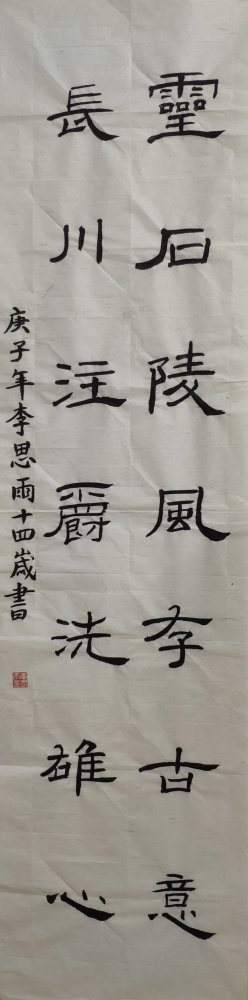 靈石陵風存古意
長川注爵洗雄心
庚子年李思雨十四歲書